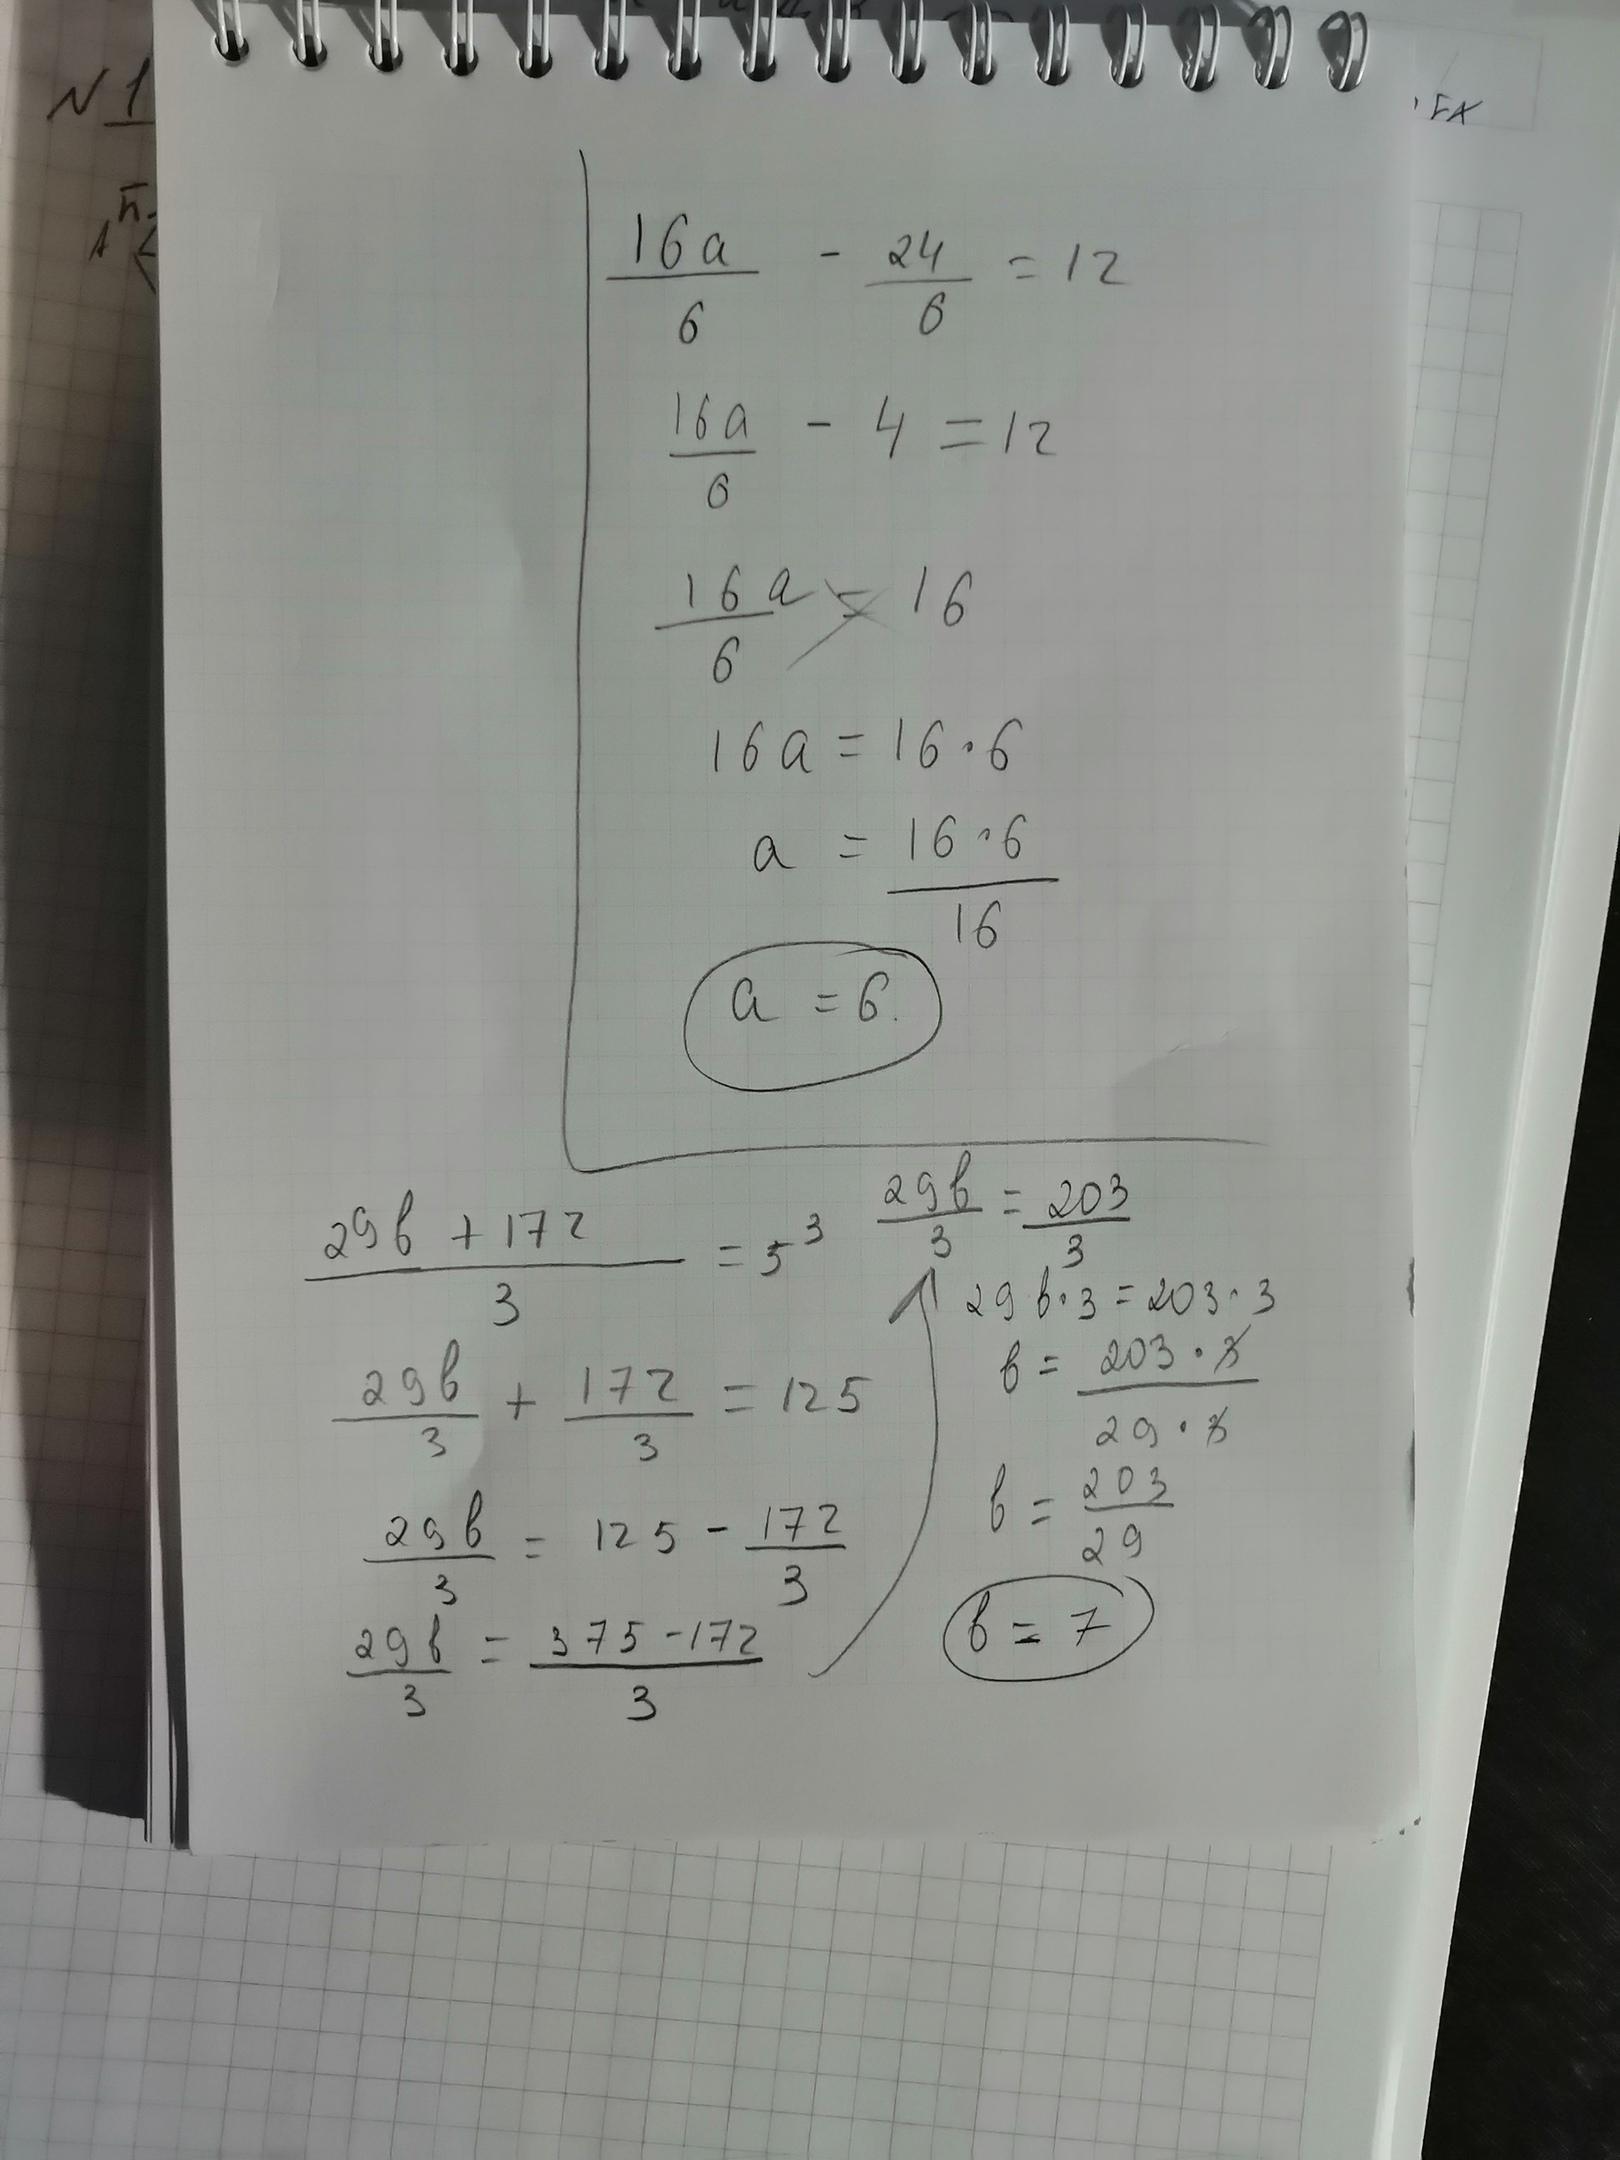 N 1
16a/6 - 24/6 = 12
16a/6 - 4 = 12
16a/6 = 16
16a = 16·6
a = 16·6/16
a = 6.
29b + 172/3 = 5³
29b/3 + 172/3 = 125
29b/3 = 125 - 172/3
29b/3 = 375 - 172/3
29b/3 = 203/3
29b·3 = 203·3
b = 203·3/29·3
b = 203/29
b = 7